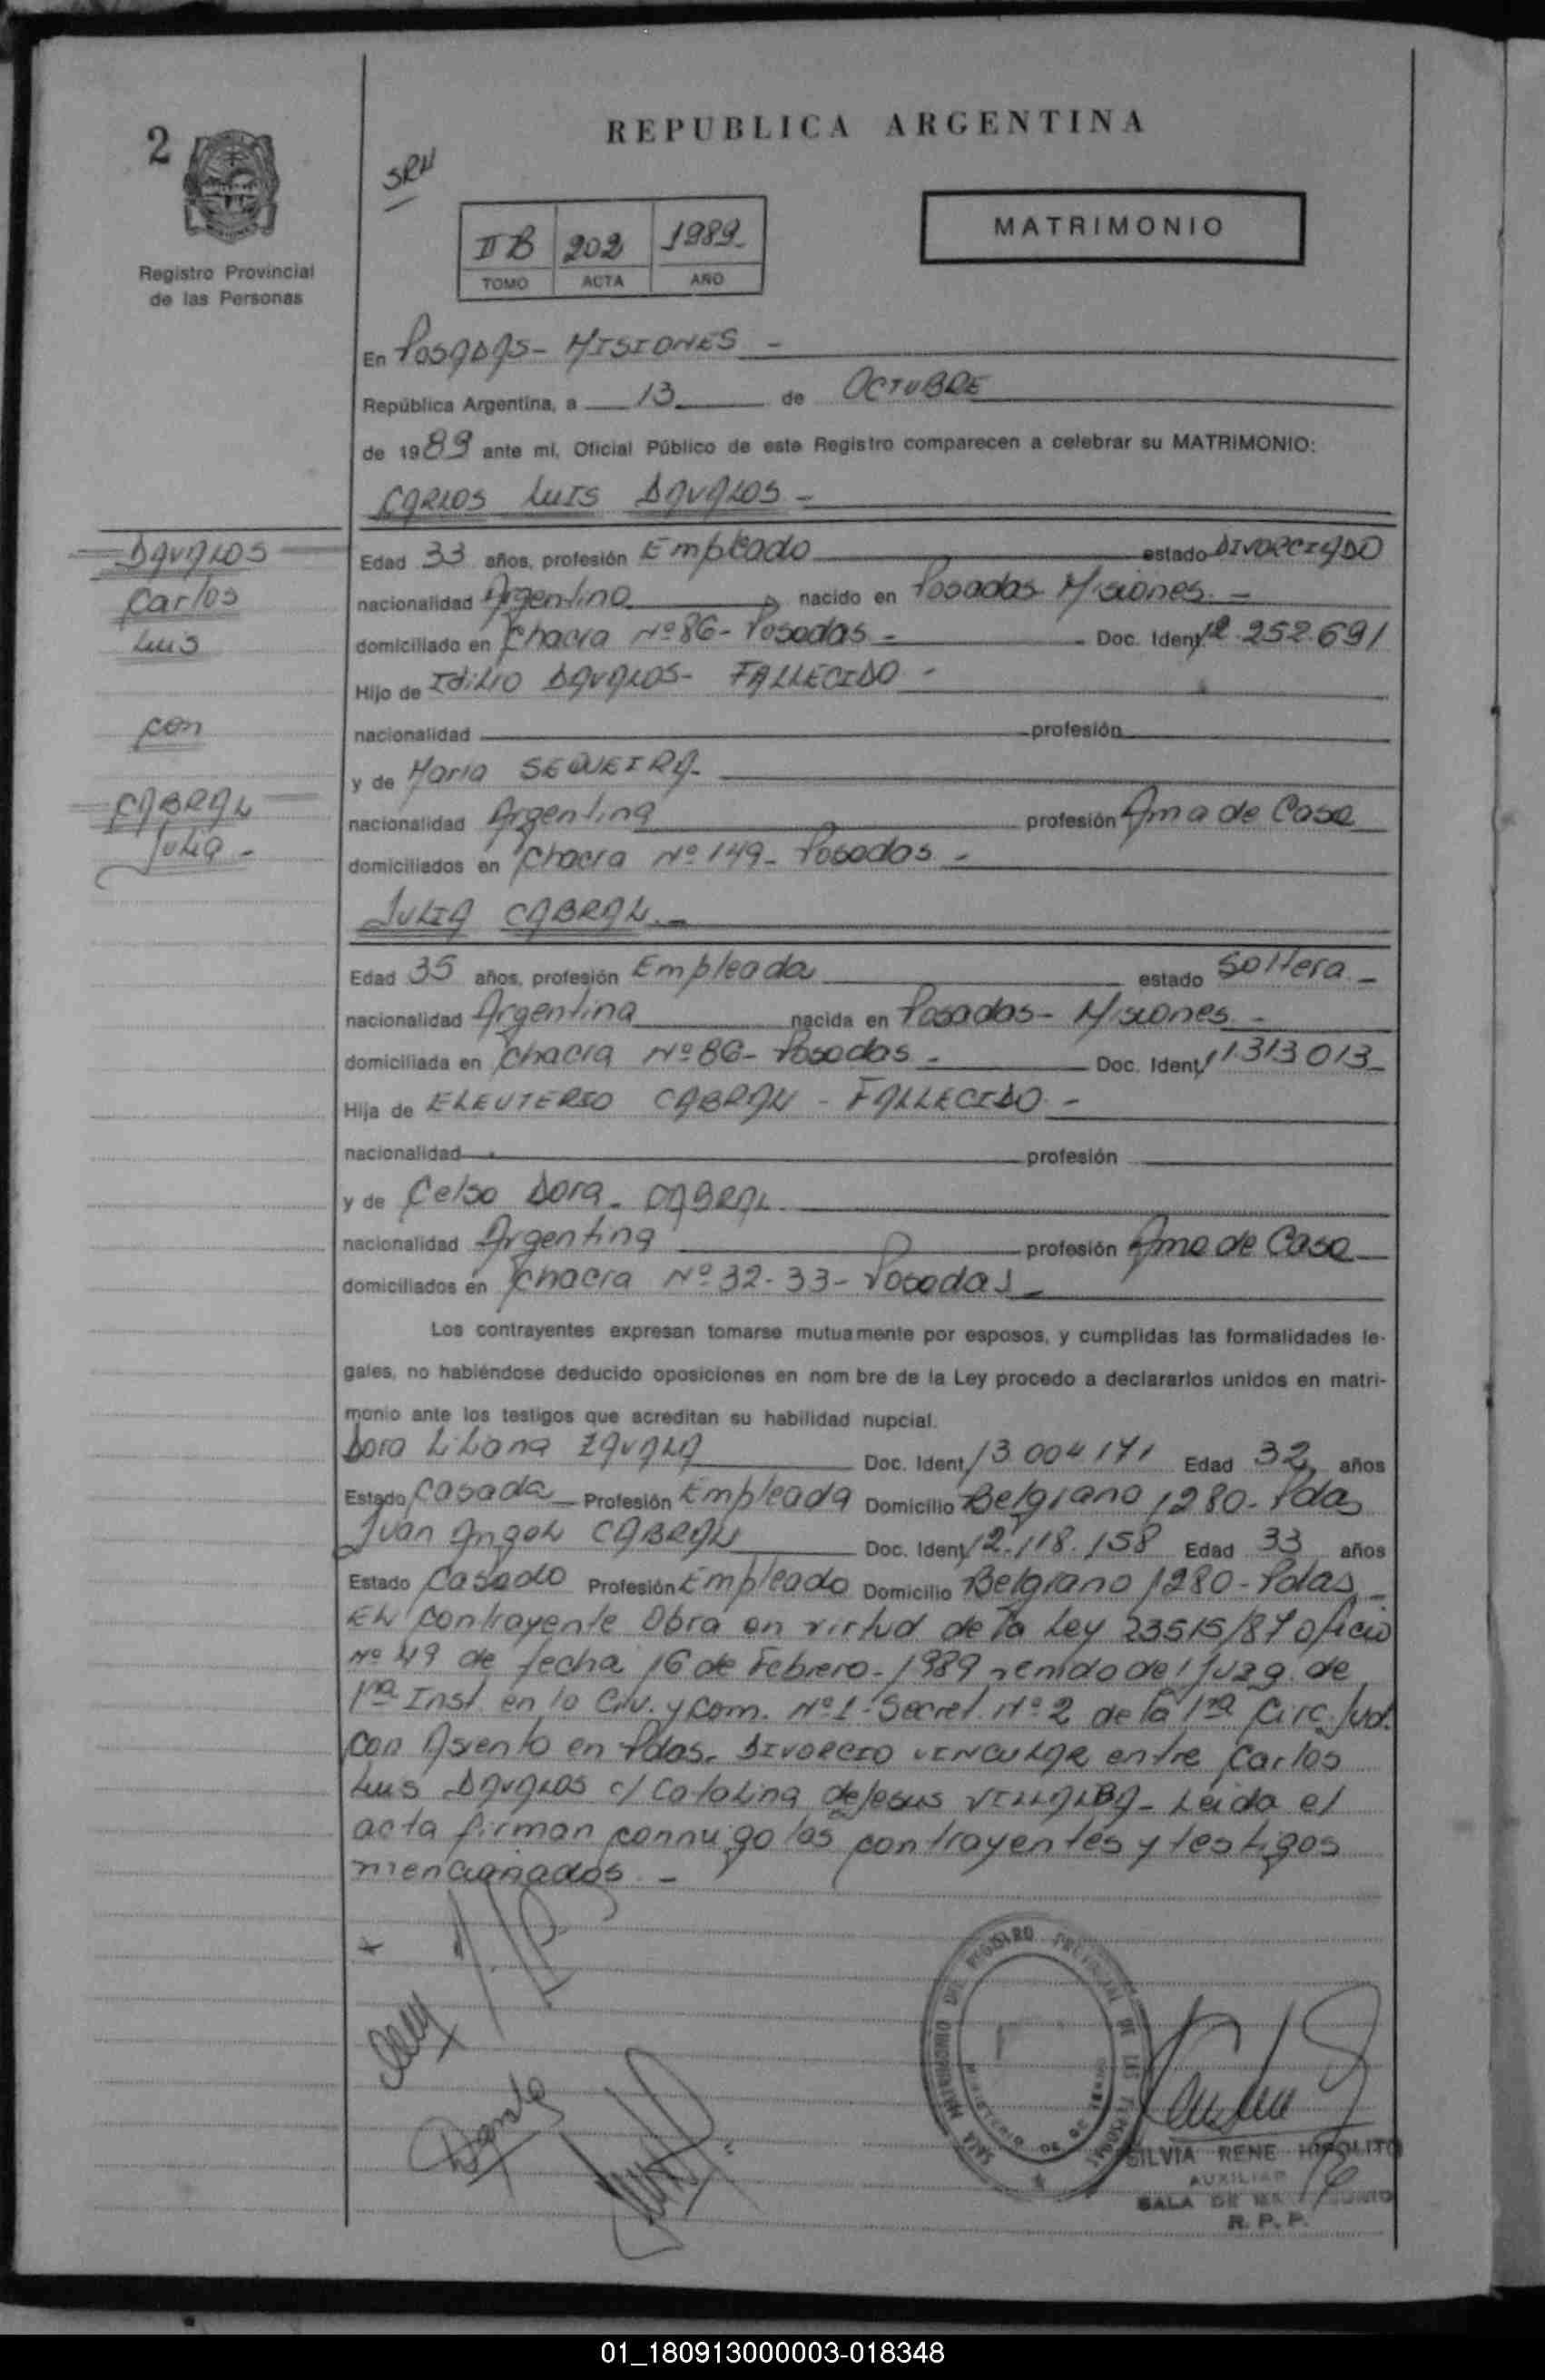 2
REPUBLICA ARGENTINA
SRH
MATRIMONIO
II B 202 1989
TOMO ACTA AÑO
Registro Provincial
de las Personas
En POSADAS - MISIONES -
República Argentina, a 13 de OCTUBRE
de 1989 ante mí, Oficial Público de este Registro comparecen a celebrar su MATRIMONIO:
CARLOS LUIS DAVALOS -
DAVALOS
Carlos
Luis
con
CABRAL
Julia -
Edad 33 años, profesión Empleado estado DIVORCIADO
nacionalidad Argentina nacido en Posadas Misiones. -
domiciliado en Chacra Nº 86 - Posadas - Doc. Ident. 12.252.691
Hijo de Idilio DAVALOS - FALLECIDO -
nacionalidad profesión
y de Maria SEQUEIRA -
nacionalidad Argentina profesión Ama de Casa
domiciliados en Chacra Nº 149 - Posadas -
JULIA CABRAL. -
Edad 35 años, profesión Empleada estado Soltera -
nacionalidad Argentina nacida en Posadas - Misiones -
domiciliada en Chacra Nº 86 - Posadas - Doc. Ident. 11.313.013
Hija de ELEUTERIO CABRAL - FALLECIDO -
nacionalidad profesión
y de Celsa Dora - CABRAL
nacionalidad Argentina profesión Ama de Casa
domiciliados en Chacra Nº 32-33 - Posadas -
Los contrayentes expresan tomarse mutuamente por esposos, y cumplidas las formalidades le-
gales, no habiéndose deducido oposiciones en nom bre de la Ley procedo a declararlos unidos en matri-
monio ante los testigos que acreditan su habilidad nupcial.
Dora Liliana ZAVALA Doc. Ident. 13.004.171 Edad 32 años
Estado Casada Profesión Empleada Domicilio Belgrano 1280 - Pdas
Juan Angel CABRAL Doc. Ident. 12.118.158 Edad 33 años
Estado Casado Profesión Empleado Domicilio Belgrano 1280 - Pdas -
El contrayente Obra en virtud de la Ley 23515/87 oficio
Nº 49 de fecha 16 de Febrero - 1989 venido del Juzg. de
1ra Inst. en lo Civ. y Com. Nº 1 - Secret. Nº 2 de la 1ra Circ. Jud.
con Asiento en Pdas. DIVORCIO VINCULAR entre Carlos
Luis DAVALOS c/ Catalina de Jesus VILLALBA - Leida el
acta firman conmigo los contrayentes y testigos
mencionados -
SILVIA RENE HIPOLITO
AUXILIAR
SALA DE
R. P. P.
01_180913000003-018348